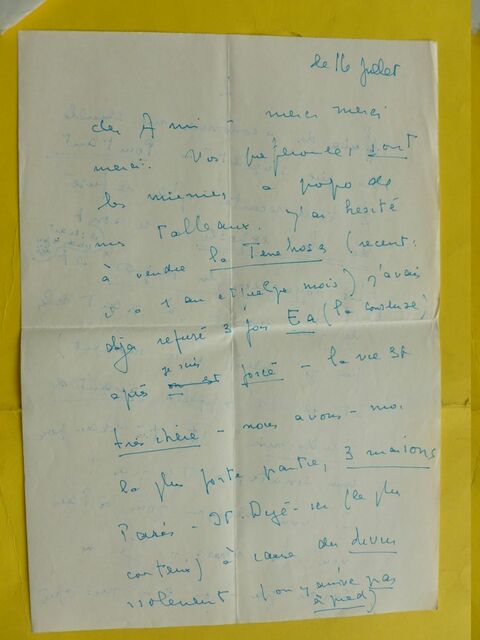 le 16 Juillet
cher Ami merci merci
merci. Vos préférences sont
les miennes à propo de
mes Tableaux. j'ai hesité
à vendre la Tenebosa (recent:
il a 1 an et quelque mois) j'avais
déja refusé 3 fois Ea (la couseuse)
après je suis forcé - la vie est
très chère - nous avons - moi
la plus forte partie, 3 maisons
Paris - St. Dyé - et (le plus
couteux) à cause du
isolement (on y arrive pas
à pied)